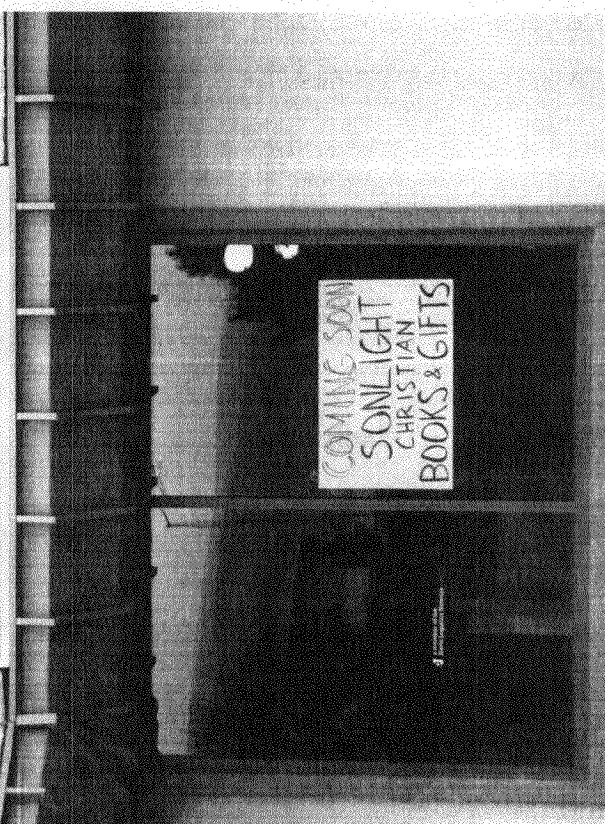 COMING SOON
SONLIGHT
CHRISTIAN
BOOKS & GIFTS